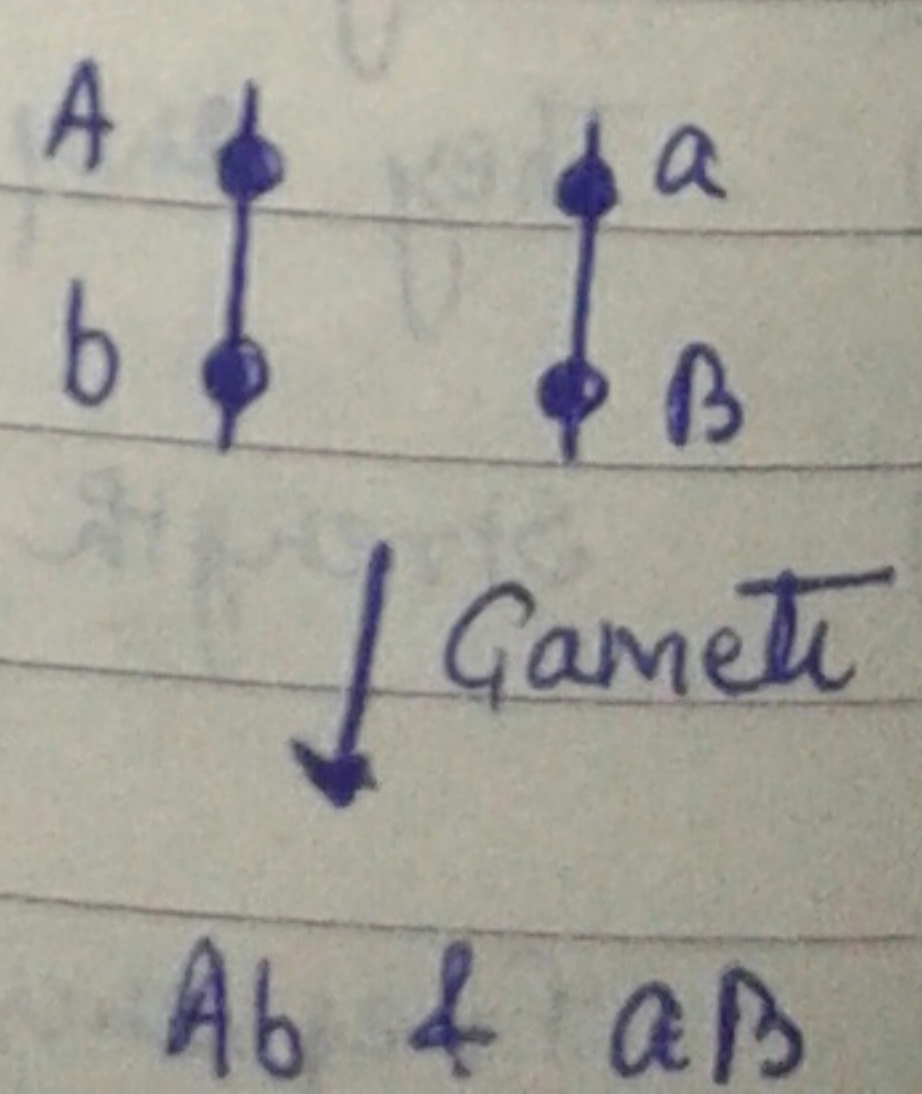 A a
b B
Gamete
Ab & aB